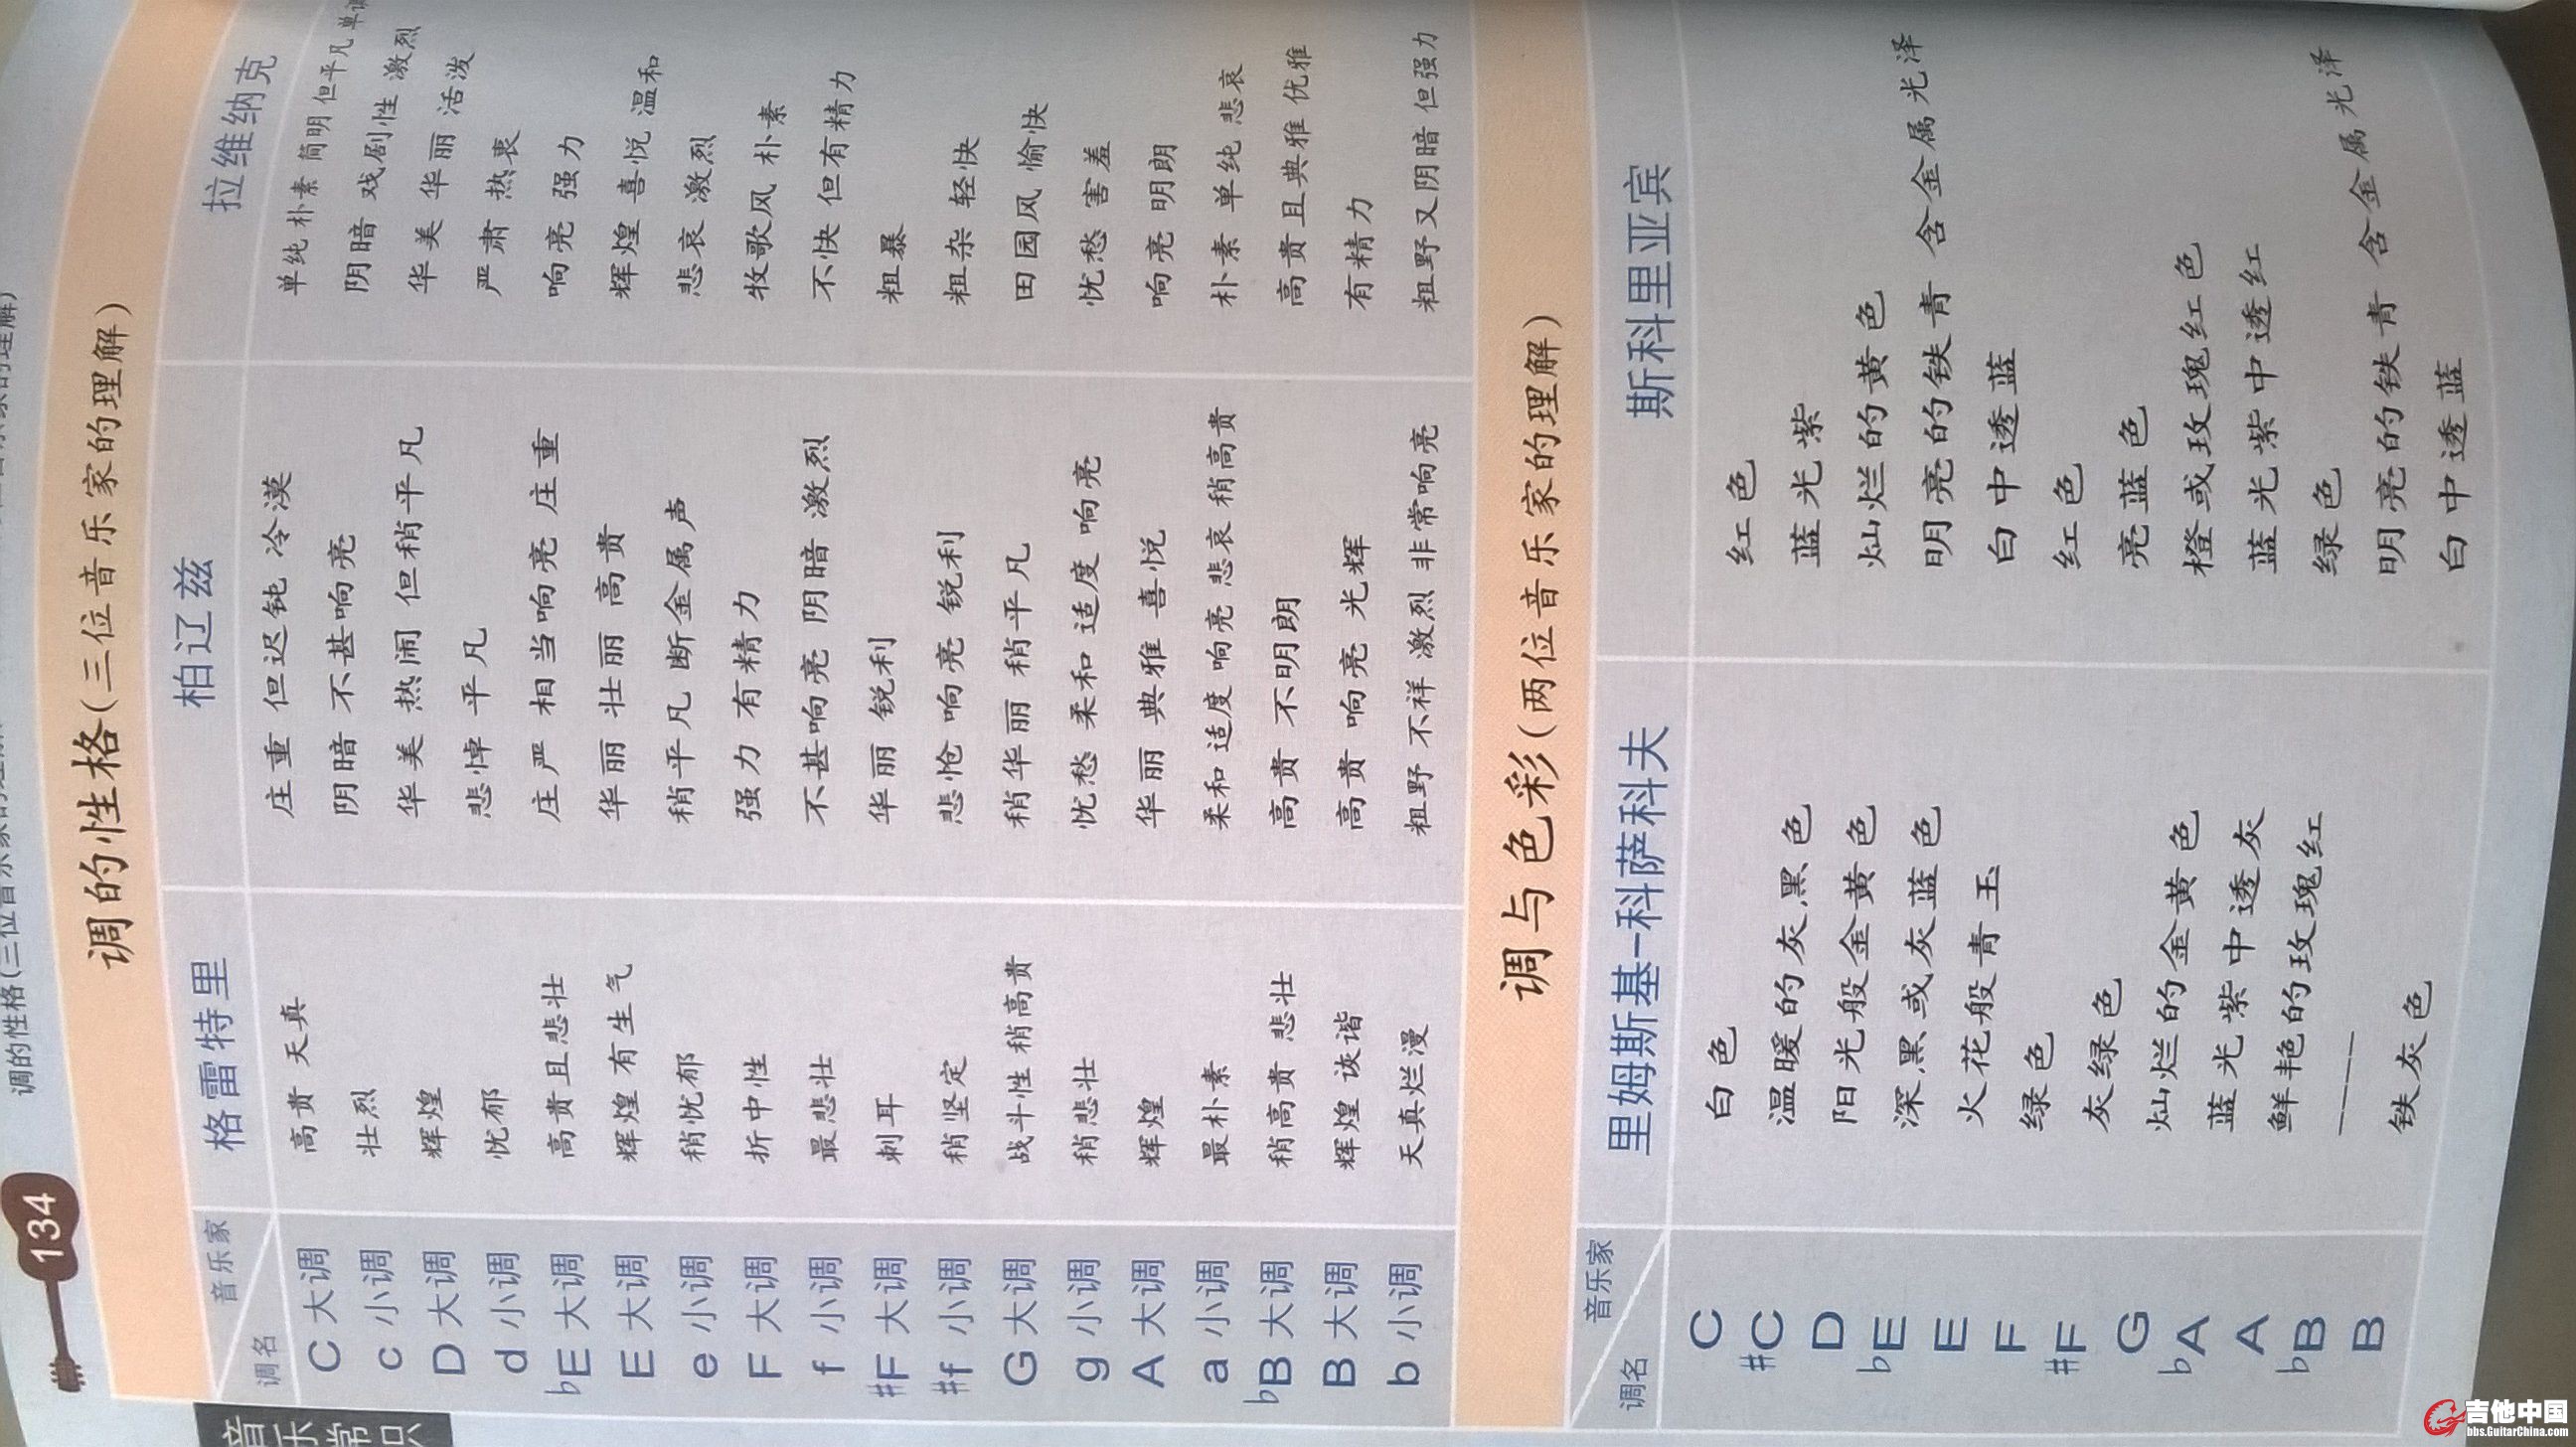 134
音乐常识
调的性格(三位音乐家的理解)
调的性格(三位音乐家的理解)
调名 音乐家 格雷特里 柏辽兹 拉维纳克
C 大调 高贵 天真 庄重 但迟钝 冷漠 单纯 朴素 简明 但平凡 单调
c 小调 壮烈 阴暗 不甚响亮 阴暗 戏剧性 激烈
D 大调 辉煌 华美 热闹 但稍平凡 华美 华丽 活泼
d 小调 忧郁 悲悼 平凡 严肃 热衷
♭E 大调 高贵且悲壮 庄严 相当响亮 庄重 响亮 强力
E 大调 辉煌 有生气 华丽 壮丽 高贵 辉煌 喜悦 温和
e 小调 稍忧郁 稍平凡 断金属声 悲哀 激烈
F 大调 折中性 强力 有精力 牧歌风 朴素
f 小调 最悲壮 不甚响亮 阴暗 激烈 不快 但有精力
♯F 大调 刺耳 华丽 锐利 粗暴
♯f 小调 稍坚定 悲怆 响亮 锐利 粗杂 轻快
G 大调 战斗性 稍高贵 稍华丽 稍平凡 田园风 愉快
g 小调 稍悲壮 忧愁 柔和 适度 响亮 忧愁 害羞
A 大调 辉煌 华丽 典雅 喜悦 响亮 明朗
a 小调 最朴素 柔和 适度 响亮 悲哀 稍高贵 朴素 单纯 悲哀
♭B 大调 稍高贵 悲壮 高贵 不明朗 高贵且典雅 优雅
B 大调 辉煌 诙谐 高贵 响亮 光辉 有精力
b 小调 天真烂漫 粗野 不祥 激烈 非常响亮 粗野又阴暗 但强力
调与色彩(两位音乐家的理解)
调名 音乐家 里姆斯基-科萨科夫 斯科里亚宾
C 白色 红色
♯C 温暖的灰黑色 蓝光紫
D 阳光般金黄色 灿烂的黄色
♭E 深黑或灰蓝色 明亮的铁青 含金属光泽
E 火花般青玉 白中透蓝
F 绿色 红色
♯F 灰绿色 亮蓝色
G 灿烂的金黄色 橙或玫瑰红色
♭A 蓝光紫中透灰 蓝光紫中透红
A 鲜艳的玫瑰红 绿色
♭B ———— 明亮的铁青 含金属光泽
B 铁灰色 白中透蓝
吉他中国
bbs.GuitarChina.com